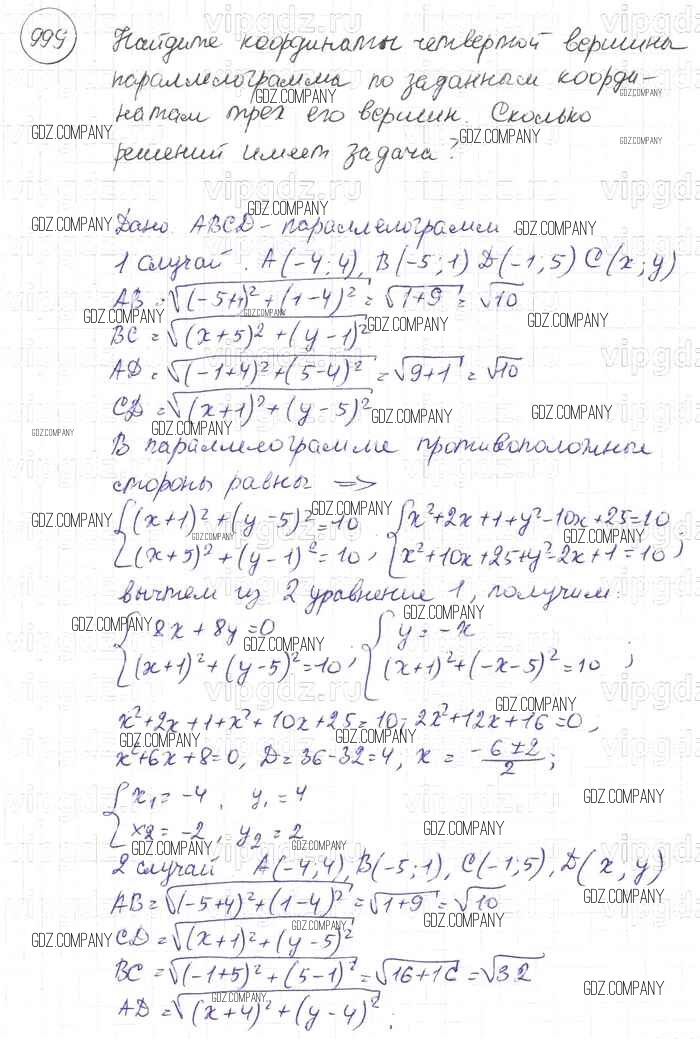 999
Найдите координаты четвертой вершины
параллелограмма по заданным коорди-
натам трех его вершин. Сколько
решений имеет задача?
Дано: ABCD - параллелограмм
1 случай. A(-4;4), B(-5;1) D(-1,5) C(x;y)
AB = √(-5+4)² + (1-4)² = √1+9 = √10
BC = √(x+5)² + (y-1)²
AD = √(-1+4)² + (5-4)² = √9+1 = √10
CD = √(x+1)² + (y-5)²
В параллелограмме противоположные
стороны равны =>
{(x+1)² + (y-5)² = 10 {x²+2x+1+y²-10x+25=10
{(x+5)² + (y-1)² = 10, {x²+10x+25+y²-2x+1=10;
вычтем из 2 уравнение 1, получим:
{8x + 8y = 0 {y = -x
{(x+1)² + (y-5)² = 10, {(x+1)² + (-x-5)² = 10;
x²+2x+1+x²+10x+25=10; 2x²+12x+16=0,
x²+6x+8=0, D=36-32=4, x = -6±2/2;
{x₁ = -4, y₁ = 4
{x₂ = -2, y₂ = 2
2 случай A(-4;4), B(-5;1), C(-1,5), D(x,y)
AB = √(-5+4)² + (1-4)² = √1+9 = √10
CD = √(x+1)² + (y-5)²
BC = √(-1+5)² + (5-1)² = √16+16 = √32
AD = √(x+4)² + (y-4)²;